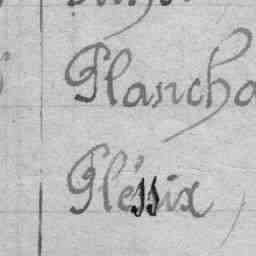 Plancha
Pléssix,